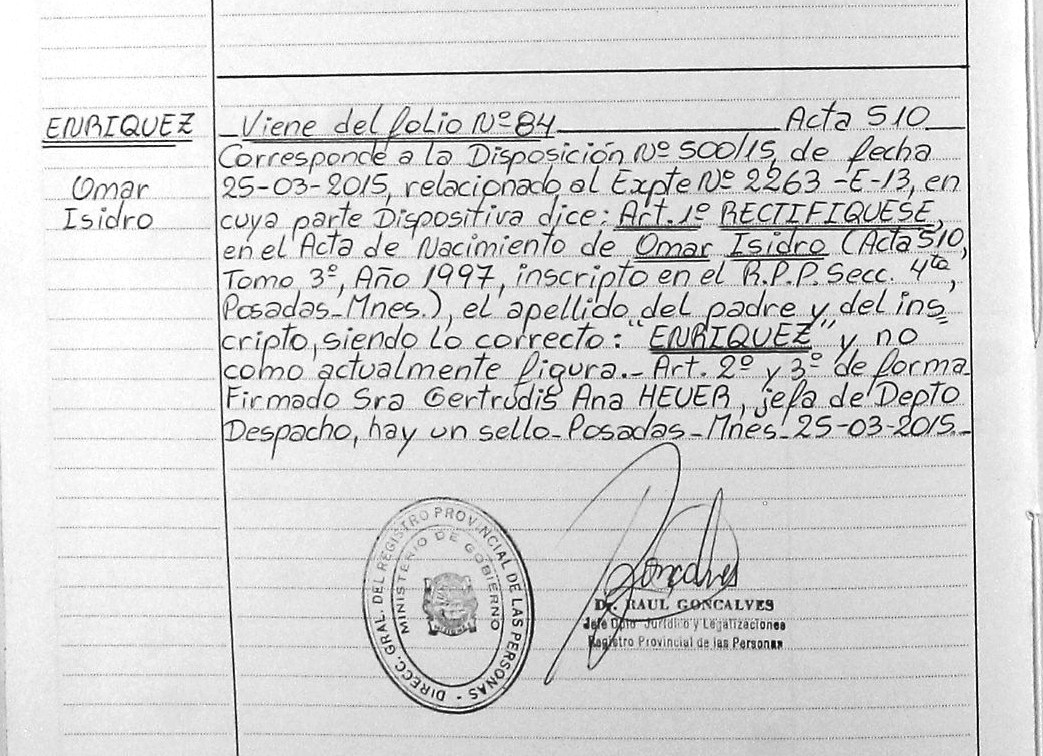 ENRIQUEZ
Omar
Isidro
Viene del folio Nº 84 Acta 510
Corresponde a la Disposición Nº 500/15, de fecha
25-03-2015, relacionado al Expte Nº 2263-E-13, en
cuya parte Dispositiva dice: Art. 1º RECTIFIQUESE,
en el Acta de Nacimiento de Omar Isidro (Acta 510,
Tomo 3º, Año 1997, inscripto en el R.P.P. Secc. 4ta,
Posadas-Mnes.), el apellido del padre y del ins=
cripto, siendo lo correcto: "ENRIQUEZ" y no
como actualmente figura.- Art. 2º y 3º de forma
Firmado Sra Gertrudis Ana HEUER, jefa de Depto
Despacho, hay un sello-Posadas-Mnes- 25-03-2015.-
DIRECC. GRAL. DEL REGISTRO PROVINCIAL DE LAS PERSONAS -
MINISTERIO DE GOBIERNO
Goncalves
Dr. RAUL GONCALVES
Jefe Dpto. Jurídico y Legalizaciones
Registro Provincial de las Personas